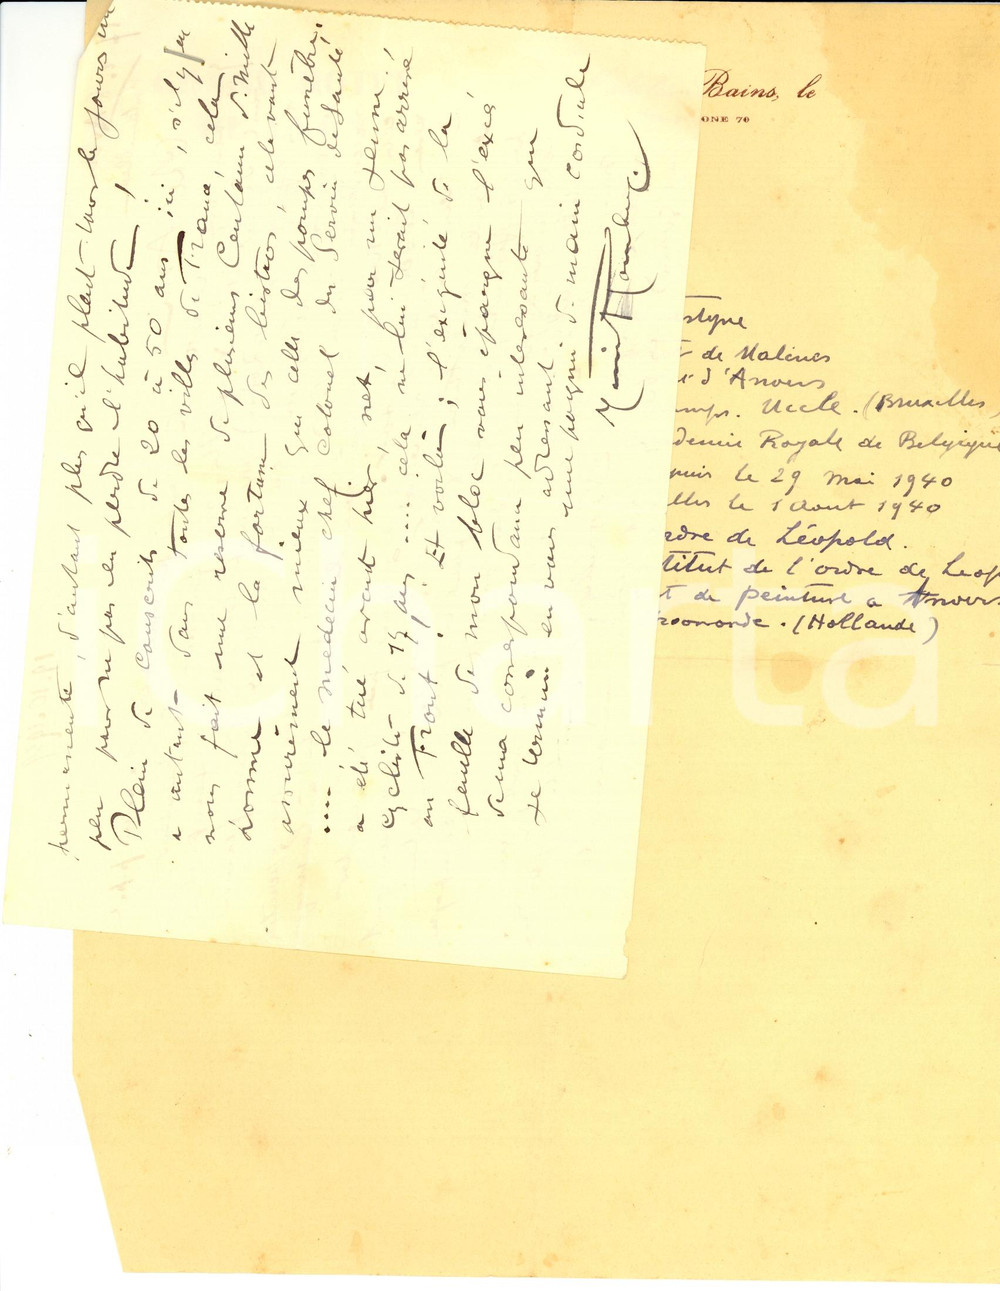 permanente, d'autant plus qu'il pleut tous les jours un
peu pour ne pas en perdre l'habitude !
Plein de conscrits de 20 à 50 ans ici, s'il y en
a autant dans toutes les villes de France, cela
nous fait une réserve de plusieurs centaines d. mille
homme et la fortune des bistros, cela vaut
assurément mieux que celle des pompes funèbres.
.... le médecin chef colonel du Service de Santé
a été tué avant hier, net, par un jeune
cycliste de 17 ans .... cela ne lui serait pas arrivé
au Front ! Et voilà ; l'exiguité de la
feuille de mon bloc vous épargne l'excé
de ma correspondance peu interessante que
je termine en vous adressant une poignée de main cordiale
Bains, le
ONE 70
styne
de Malines
d'Anvers
Uccle. (Bruxelles)
démie Royale de Belgique
puis le 29 mai 1940
elles le 1 Aout 1940
rdre de Léopold.
stitut de l'ordre de Leop
t de peinture a Anvers
(Hollande)
charta